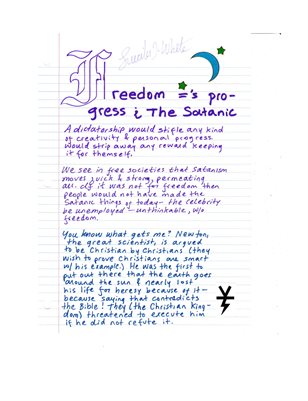 Lucila J. White
Freedom ='s pro-
gress & The Satanic
A dictatorship would stifle any kind
of creativity & personal progress
would strip away any reward keeping
it for themself.
We see in free societies that Satanism
moves quick & strong, permeating
all. If it was not for freedom then
people would not have made the
Satanic things of today - the celebrity
be unemployed - unthinkable, w/o
freedom.
You know what gets me? Newton,
the great scientist, is argued
to be Christian by Christians (they
wish to prove Christians are smart
w/ his example.) He was the first to
put out there that the earth goes
around the sun & nearly lost
his life for heresy because of it -
because saying that contradicts
the Bible! They (the Christian King-
dom) threatened to execute him
if he did not refute it.